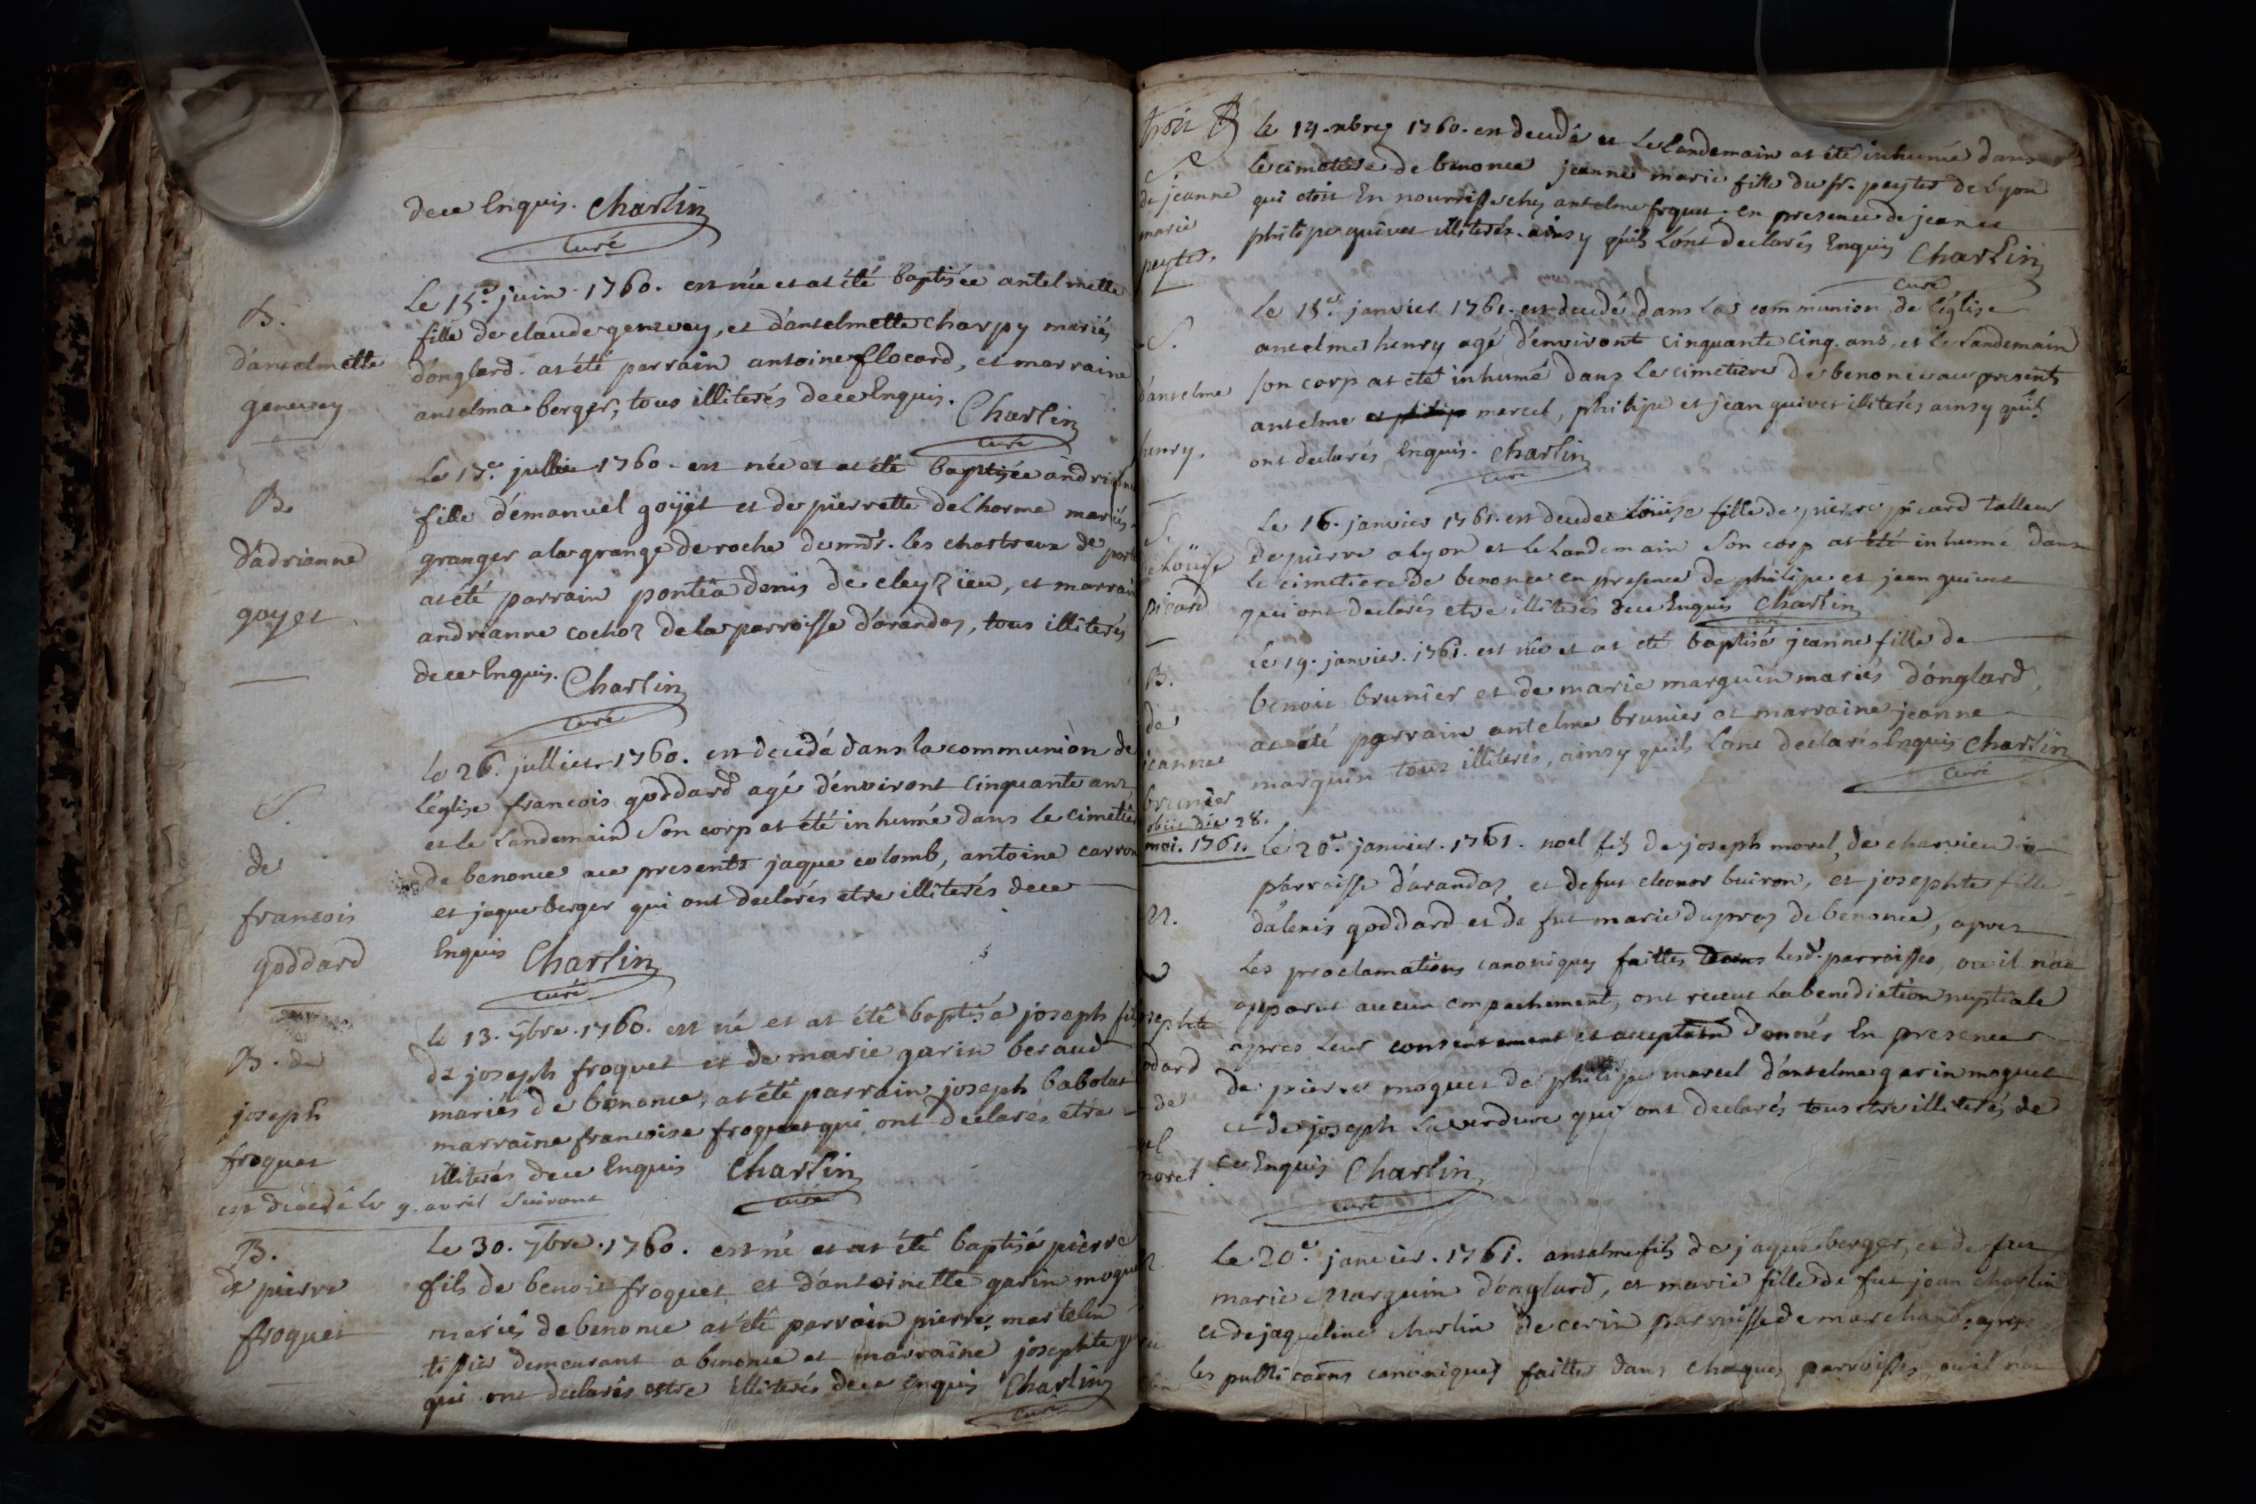 dece Enquis. Charlin
curé
B.
d'antelmette
genevey
Le 15e. juin. 1760. est née et at été baptisée antelmette
fille de claude genevey, et d'antelmette charpy mariés
d'onglard. at été parrain antoine flocard, et marraine
antelma berger, tous illiterés dece Enquis.
Charlin
curé
B.
d'adrianne
goyet
Le 17e. jullie 1760. est née et at été baptisée andrianne
fille d'emanuel goÿet et de pierrette delhorme mariés
granger a la grange de roche de mrs. les chartreux de
at été parrain pontia denis de cleyzieu, et marraine
andrianne cochoz de la parroisse d'arandaz, tous illiterés
dece Enquis. Charlin
curé
S.
de
francois
goddard
le 26. jullier 1760. est decedé dans la communion de
l'église francois goddard agé d'environt cinquante ans
et le Landemain Son corp at été inhumé dans le cimetie
de benonce au presents jaque colomb, antoine carron
et jaque berger qui ont declarés etre illiterés dece
Enquis Charlin
curé
B. de
joseph
froquet
est décédé le 9. avril Suivant
le 13. 7bre. 1760. est né et at été baptisé joseph fils
de joseph froquet et de marie garin beraud
mariés de benonce, at été parrain joseph babolat
marraine francoise froquet qui ont declarés etre
illiterés dece Enquis Charlin
curé
B.
de pierre
froquet
Le 30. 7bre. 1760. est né et at été baptisé pierre
fils de benoit froquet et d'antoinette garin moquet
mariés de benonce at été parrain pierre martelin
tissier demeurant a benonce et marraine josephte
qui ont declarés estre illiterés dece Enquis Charlin
curé
S
de jeanne
marie
peytes.
le 14. nbre 1760. est decedé et Le landemain at été inhumé dans
le cimetiere de benonce jeanne marie fille du sr. peytes de Lyon
qui etoit En nourrisse chez antelme froquet, en presence de jean et
philipe quivet illiterés. ainsy quils Lont declarés Enquis Charlin
curé
S.
d'antelme
henry.
Le 15e. janvier 1761. est decedé dans Las communion de l'église
antelme henry agé d'environt cinquante cinq. ans, et le Landemain
son corp at eté inhumé dans Le cimetiere de benonce au presents
antelme et philip marcel, philipe et jean quivet illiterés ainsy quils
ont declarés Enquis. Charlin
curé
S.
de Loüise
picard
Le 16. janvier 1761. est decedee Loüise fille de pierre picard tallieur
de pierre a lyon et le Landemain Son corp at été inhumé dans
Le cimetiere de benonce en presence de philipe et jean quivet
qui ont declarés etre illiterés dece Enquis Charlin
curé
B.
de
jeanne
brunier
obiit die 28.
1761.
Le 19. janvier. 1761. est née et at eté baptisé jeanne fille de
benoit brunier et de marie marguin mariés d'onglard,
at été parrain antelme brunier et marraine jeanne
marguin tous illiterés, ainsy quils Lont declarés Enquis Charlin
curé
M.
josephte
goddard
de
noel
morel
Le 20e. janvier. 1761. noel fils de joseph morel, de charvieu
parroisse d'arandaz et defut eleonor buiron, et josephte fille
d'alexis goddard et de fut marie dupraz de benonce, apres
Les proclamations canoniques faittes dans Lesd. parroisses, ou il n'at
apparut aucun empachement, ont recut La benediction nuptiale
apres Leur consentement et acceptation donnés En presence
de pierre moquet de philipe marcel d'antelme garin moquet
et de joseph Laverdure qui ont declarés tous etre illiterés de
ce Enquis Charlin
curé
Le 20e. janvier. 1761. antelme fils de jaque berger, et de fut
marie marguin d'onglard, et marie fille de fut jean charlin
et de jaqueline charlin de cerin parroisse de marchand, apres
les publicaons canoniques faittes dans chaques parroisses, ou il nat